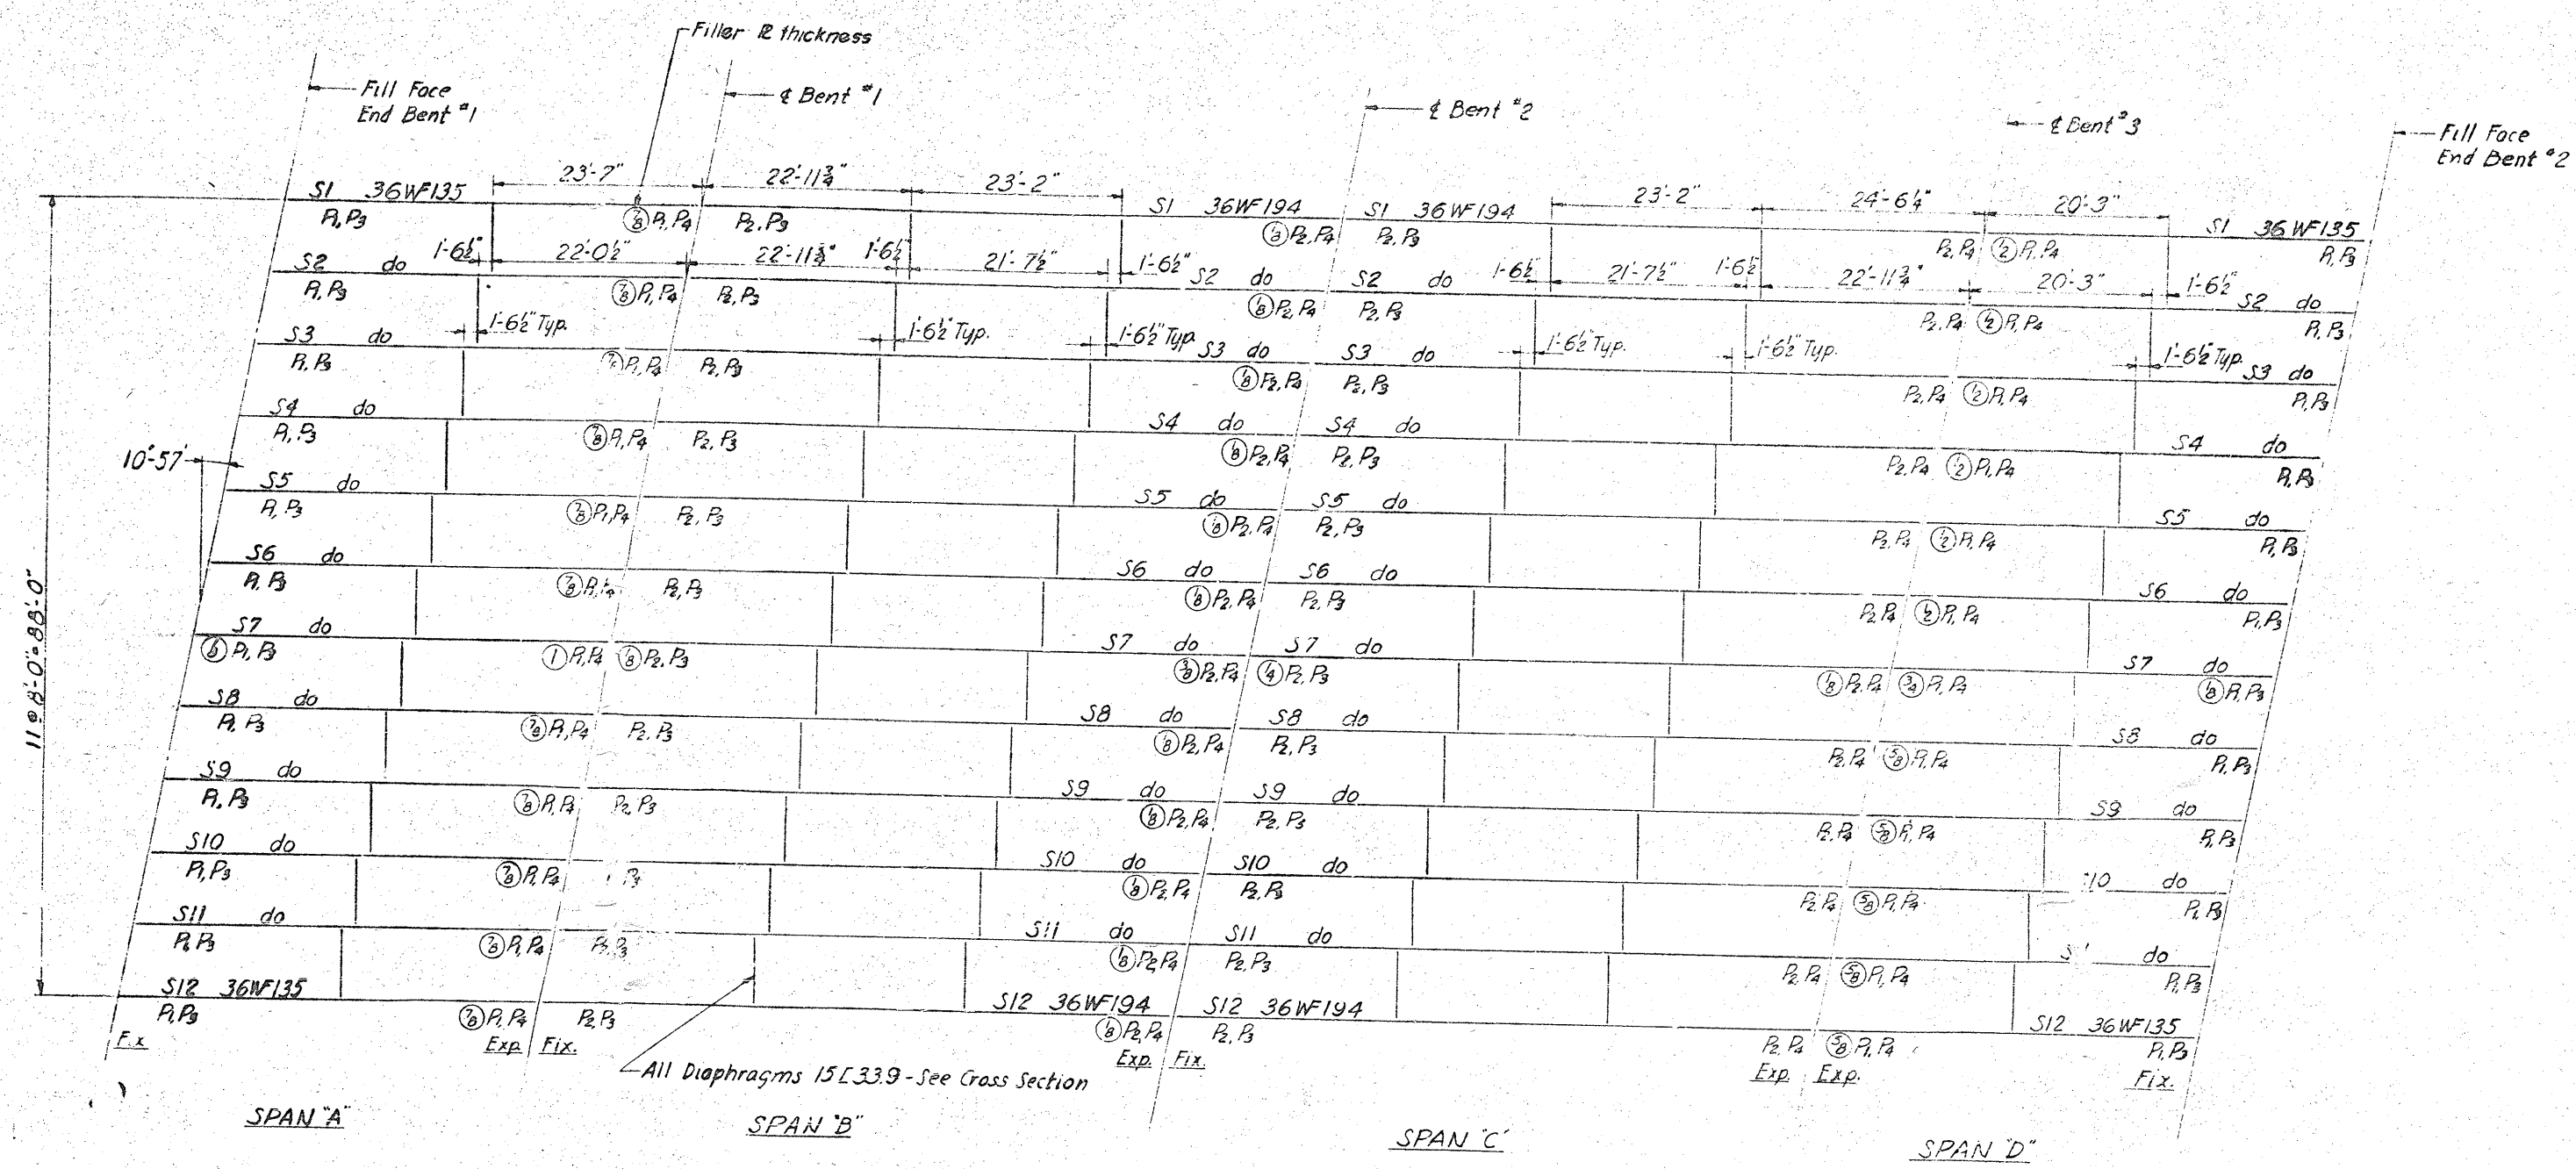 Filler ℞ thickness
Fill Face
End Bent #1
℄ Bent #1
℄ Bent #2
℄ Bent #3
Fill Face
End Bent #2
23'-7" 22'-11¾" 23'-2" 23'-2" 24'-6¼" 20'-3"
S1 36WF135 S1 36WF194 S1 36WF194 S1 36WF135
P1, P3 ⅞ P1, P4 P2, P3 ⅛ P2, P4 P2, P3 P2, P4 ½ P1, P4 P1, P3
1'-6½" 22'-0½" 22'-11¾" 1'-6½" 21'-7½" 1'-6½" 1'-6½" 21'-7½" 1'-6½" 22'-11¾" 20'-3" 1'-6½"
S2 do S2 do S2 do S2 do
P1, P3 ⅞ P1, P4 P2, P3 ⅛ P2, P4 P2, P3 P2, P4 ½ P1, P4 P1, P3
1'-6½" Typ. 1'-6½" Typ. 1'-6½" Typ. 1'-6½" Typ. 1'-6½" Typ. 1'-6½" Typ.
S3 do S3 do S3 do S3 do
P1, P3 P1, P4 P2, P3 ⅛ P2, P4 P2, P3 P2, P4 ½ P1, P4 P1, P3
S4 do S4 do S4 do S4 do
P1, P3 ⅞ P1, P4 P2, P3 ⅛ P2, P4 P2, P3 P2, P4 ½ P1, P4 P1, P3
10°-57'
S5 do S5 do S5 do S5 do
P1, P3 ⅞ P1, P4 P2, P3 ⅛ P2, P4 P2, P3 P2, P4 ½ P1, P4 P1, P3
S6 do S6 do S6 do S6 do
P1, P3 ⅞ P1, P4 P2, P3 ⅛ P2, P4 P2, P3 P2, P4 ½ P1, P4 P1, P3
11@8'-0"=88'-0"
S7 do S7 do S7 do S7 do
⅛ P1, P3 1 P1, P4 ⅛ P2, P3 ⅜ P2, P4 ¼ P2, P3 ⅛ P2, P4 ¾ P1, P4 ⅛ P1, P3
S8 do S8 do S8 do S8 do
P1, P3 ⅞ P1, P4 P2, P3 ⅛ P2, P4 P2, P3 P2, P4 ⅝ P1, P4 P1, P3
S9 do S9 do S9 do S9 do
P1, P3 ⅞ P1, P4 P2, P3 ⅛ P2, P4 P2, P3 P2, P4 ⅝ P1, P4 P1, P3
S10 do S10 do S10 do 10 do
P1, P3 ⅞ P1, P4 P3 ⅛ P2, P4 P2, P3 P2, P4 ⅝ P1, P4 P1, P3
S11 do S11 do S11 do do
P1, P3 ⅞ P1, P4 P2, P3 ⅛ P2, P4 P2, P3 P2, P4 ⅝ P1, P4 P1, P3
S12 36WF135 S12 36WF194 S12 36WF194 S12 36WF135
P1, P3 ⅞ P1, P4 P2, P3 ⅛ P2, P4 P2, P3 P2, P4 ⅝ P1, P4 P1, P3
Fix Exp. Fix. Exp. Fix. Exp. Exp. Fix.
All Diaphragms 15[33.9 - See Cross Section
SPAN "A" SPAN "B" SPAN "C" SPAN "D"